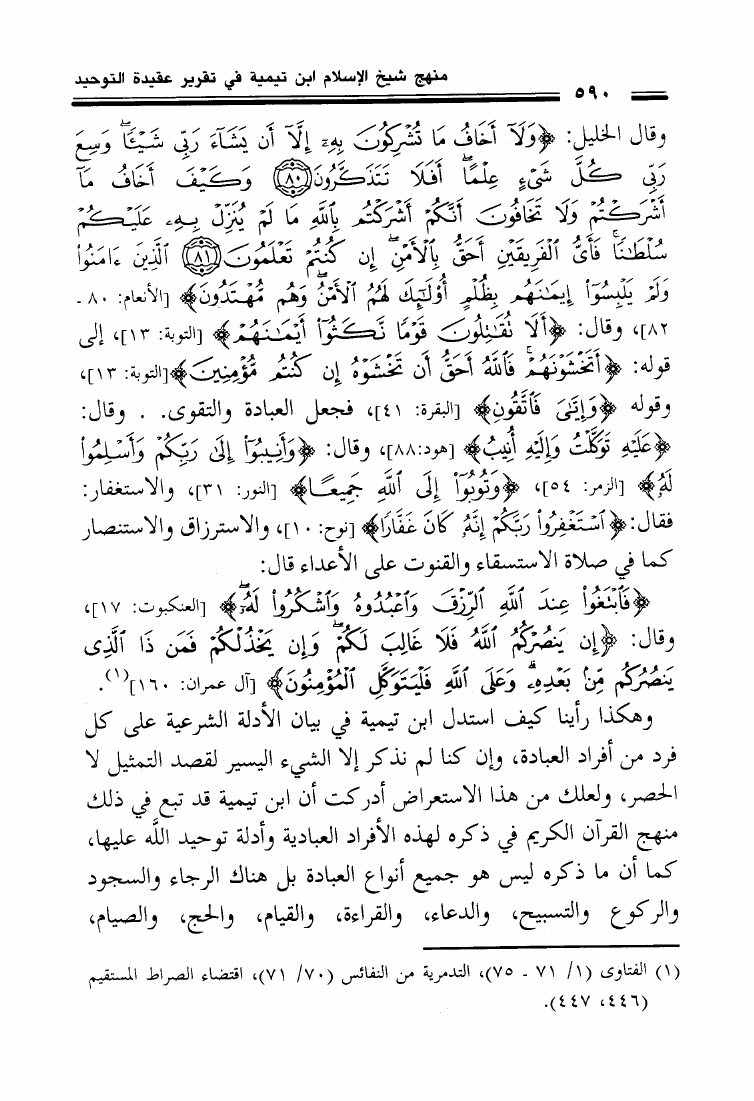 منهج شيخ الإسلام ابن تيمية في تقرير عقيدة التوحيد
٥٩٠
وقال الخليل: ﴿وَلَآ أَخَافُ مَا تُشْرِكُونَ بِهِۦٓ إِلَّآ أَن يَشَآءَ رَبِّى شَيْـًٔا ۗ وَسِعَ
رَبِّى كُلَّ شَىْءٍ عِلْمًا ۗ أَفَلَا تَتَذَكَّرُونَ ٨٠ وَكَيْفَ أَخَافُ مَآ
أَشْرَكْتُمْ وَلَا تَخَافُونَ أَنَّكُمْ أَشْرَكْتُم بِٱللَّهِ مَا لَمْ يُنَزِّلْ بِهِۦ عَلَيْكُمْ
سُلْطَٰنًا ۚ فَأَىُّ ٱلْفَرِيقَيْنِ أَحَقُّ بِٱلْأَمْنِ ۖ إِن كُنتُمْ تَعْلَمُونَ ٨١ ٱلَّذِينَ ءَامَنُوا۟
وَلَمْ يَلْبِسُوٓا۟ إِيمَٰنَهُم بِظُلْمٍ أُو۟لَٰٓئِكَ لَهُمُ ٱلْأَمْنُ ۖ وَهُم مُّهْتَدُونَ﴾ [الأنعام: ٨٠ ـ
٨٢]، وقال: ﴿أَلَا تُقَٰتِلُونَ قَوْمًا نَّكَثُوٓا۟ أَيْمَٰنَهُمْ﴾ [التوبة: ١٣]، إلى
قوله: ﴿أَتَخْشَوْنَهُمْ ۚ فَٱللَّهُ أَحَقُّ أَن تَخْشَوْهُ إِن كُنتُم مُّؤْمِنِينَ﴾[التوبة: ١٣]،
وقوله ﴿وَإِيَّٰىَ فَٱتَّقُونِ﴾ [البقرة: ٤١]، فجعل العبادة والتقوى. . وقال:
﴿عَلَيْهِ تَوَكَّلْتُ وَإِلَيْهِ أُنِيبُ﴾ [هود:٨٨]، وقال: ﴿وَأَنِيبُوٓا۟ إِلَىٰ رَبِّكُمْ وَأَسْلِمُوا۟
لَهُۥ﴾ [الزمر: ٥٤]، ﴿وَتُوبُوٓا۟ إِلَى ٱللَّهِ جَمِيعًا﴾ [النور: ٣١]، والاستغفار:
فقال:﴿ٱسْتَغْفِرُوا۟ رَبَّكُمْ إِنَّهُۥ كَانَ غَفَّارًا﴾ [نوح: ١٠]، والاسترزاق والاستنصار
كما في صلاة الاستسقاء والقنوت على الأعداء قال:
﴿فَٱبْتَغُوا۟ عِندَ ٱللَّهِ ٱلرِّزْقَ وَٱعْبُدُوهُ وَٱشْكُرُوا۟ لَهُۥٓ ۖ﴾ [العنكبوت: ١٧]،
وقال: ﴿إِن يَنصُرْكُمُ ٱللَّهُ فَلَا غَالِبَ لَكُمْ ۖ وَإِن يَخْذُلْكُمْ فَمَن ذَا ٱلَّذِى
يَنصُرُكُم مِّنۢ بَعْدِهِۦ ۗ وَعَلَى ٱللَّهِ فَلْيَتَوَكَّلِ ٱلْمُؤْمِنُونَ﴾ [آل عمران: ١٦٠](١).
وهكذا رأينا كيف استدل ابن تيمية في بيان الأدلة الشرعية على كل
فرد من أفراد العبادة، وإن كنا لم نذكر إلا الشيء اليسير لقصد التمثيل لا
الحصر، ولعلك من هذا الاستعراض أدركت أن ابن تيمية قد تبع في ذلك
منهج القرآن الكريم في ذكره لهذه الأفراد العبادية وأدلة توحيد اللَّه عليها،
كما أن ما ذكره ليس هو جميع أنواع العبادة بل هناك الرجاء والسجود
والركوع والتسبيح، والدعاء، والقراءة، والقيام، والحج، والصيام،
(١) الفتاوى (١/ ٧١ ـ ٧٥)، التدمرية من النفائس (٧٠/ ٧١)، اقتضاء الصراط المستقيم
(٤٤٦، ٤٤٧).